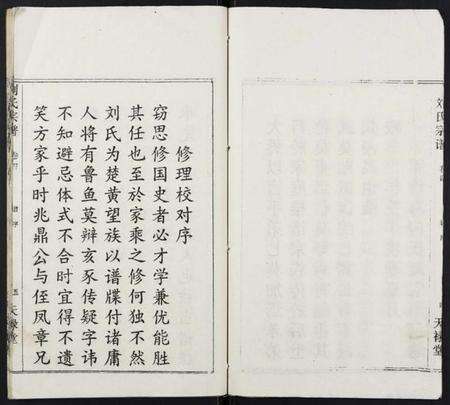 刘氏宗谱
天禄堂
修理校对序
窃思修国史者必才学兼优能胜
其任也至於家乘之修何独不然
刘氏为楚黄望族以谱牒付诸庸
人将有鲁鱼莫辩亥豕传疑字讳
不知避忌体式不合时宜得不遗
笑方家乎时兆鼎公与侄凤章兄
刘氏宗谱
五
天禄堂